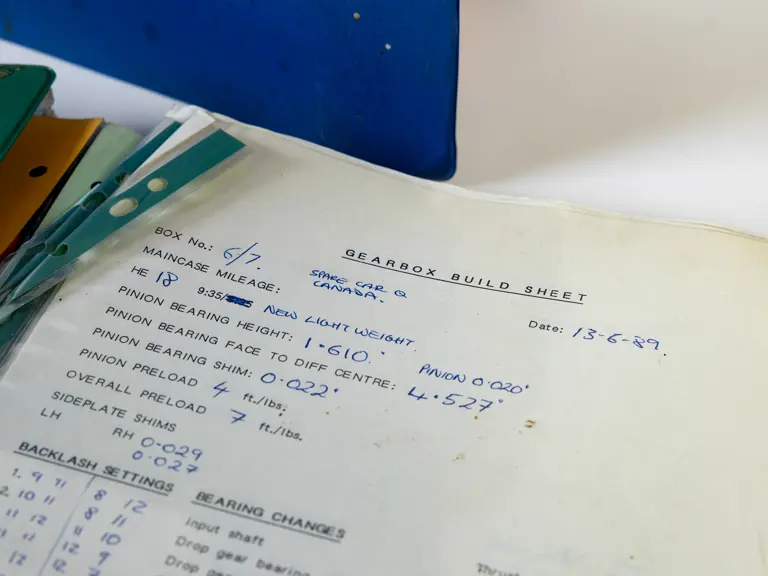 GEARBOX BUILD SHEET
BOX No.: 6/7.
SPARE CAR Q
CANADA.
Date: 13-6-89.
MAINCASE MILEAGE:
HE 18 9:35/ NEW LIGHTWEIGHT.
PINION BEARING HEIGHT: 1.610" PINION 0.020"
PINION BEARING FACE TO DIFF CENTRE: 4.527"
PINION BEARING SHIM: 0.022"
PINION PRELOAD 4 ft./lbs.
OVERALL PRELOAD 7 ft./lbs.
SIDEPLATE SHIMS
LH RH 0.029
0.027
BACKLASH SETTINGS BEARING CHANGES
1. 9 11 8 12 Input shaft
2. 10 11 8 11 Drop gear bearing
11 12 11 10 Drop
11 12 9
12 12 7